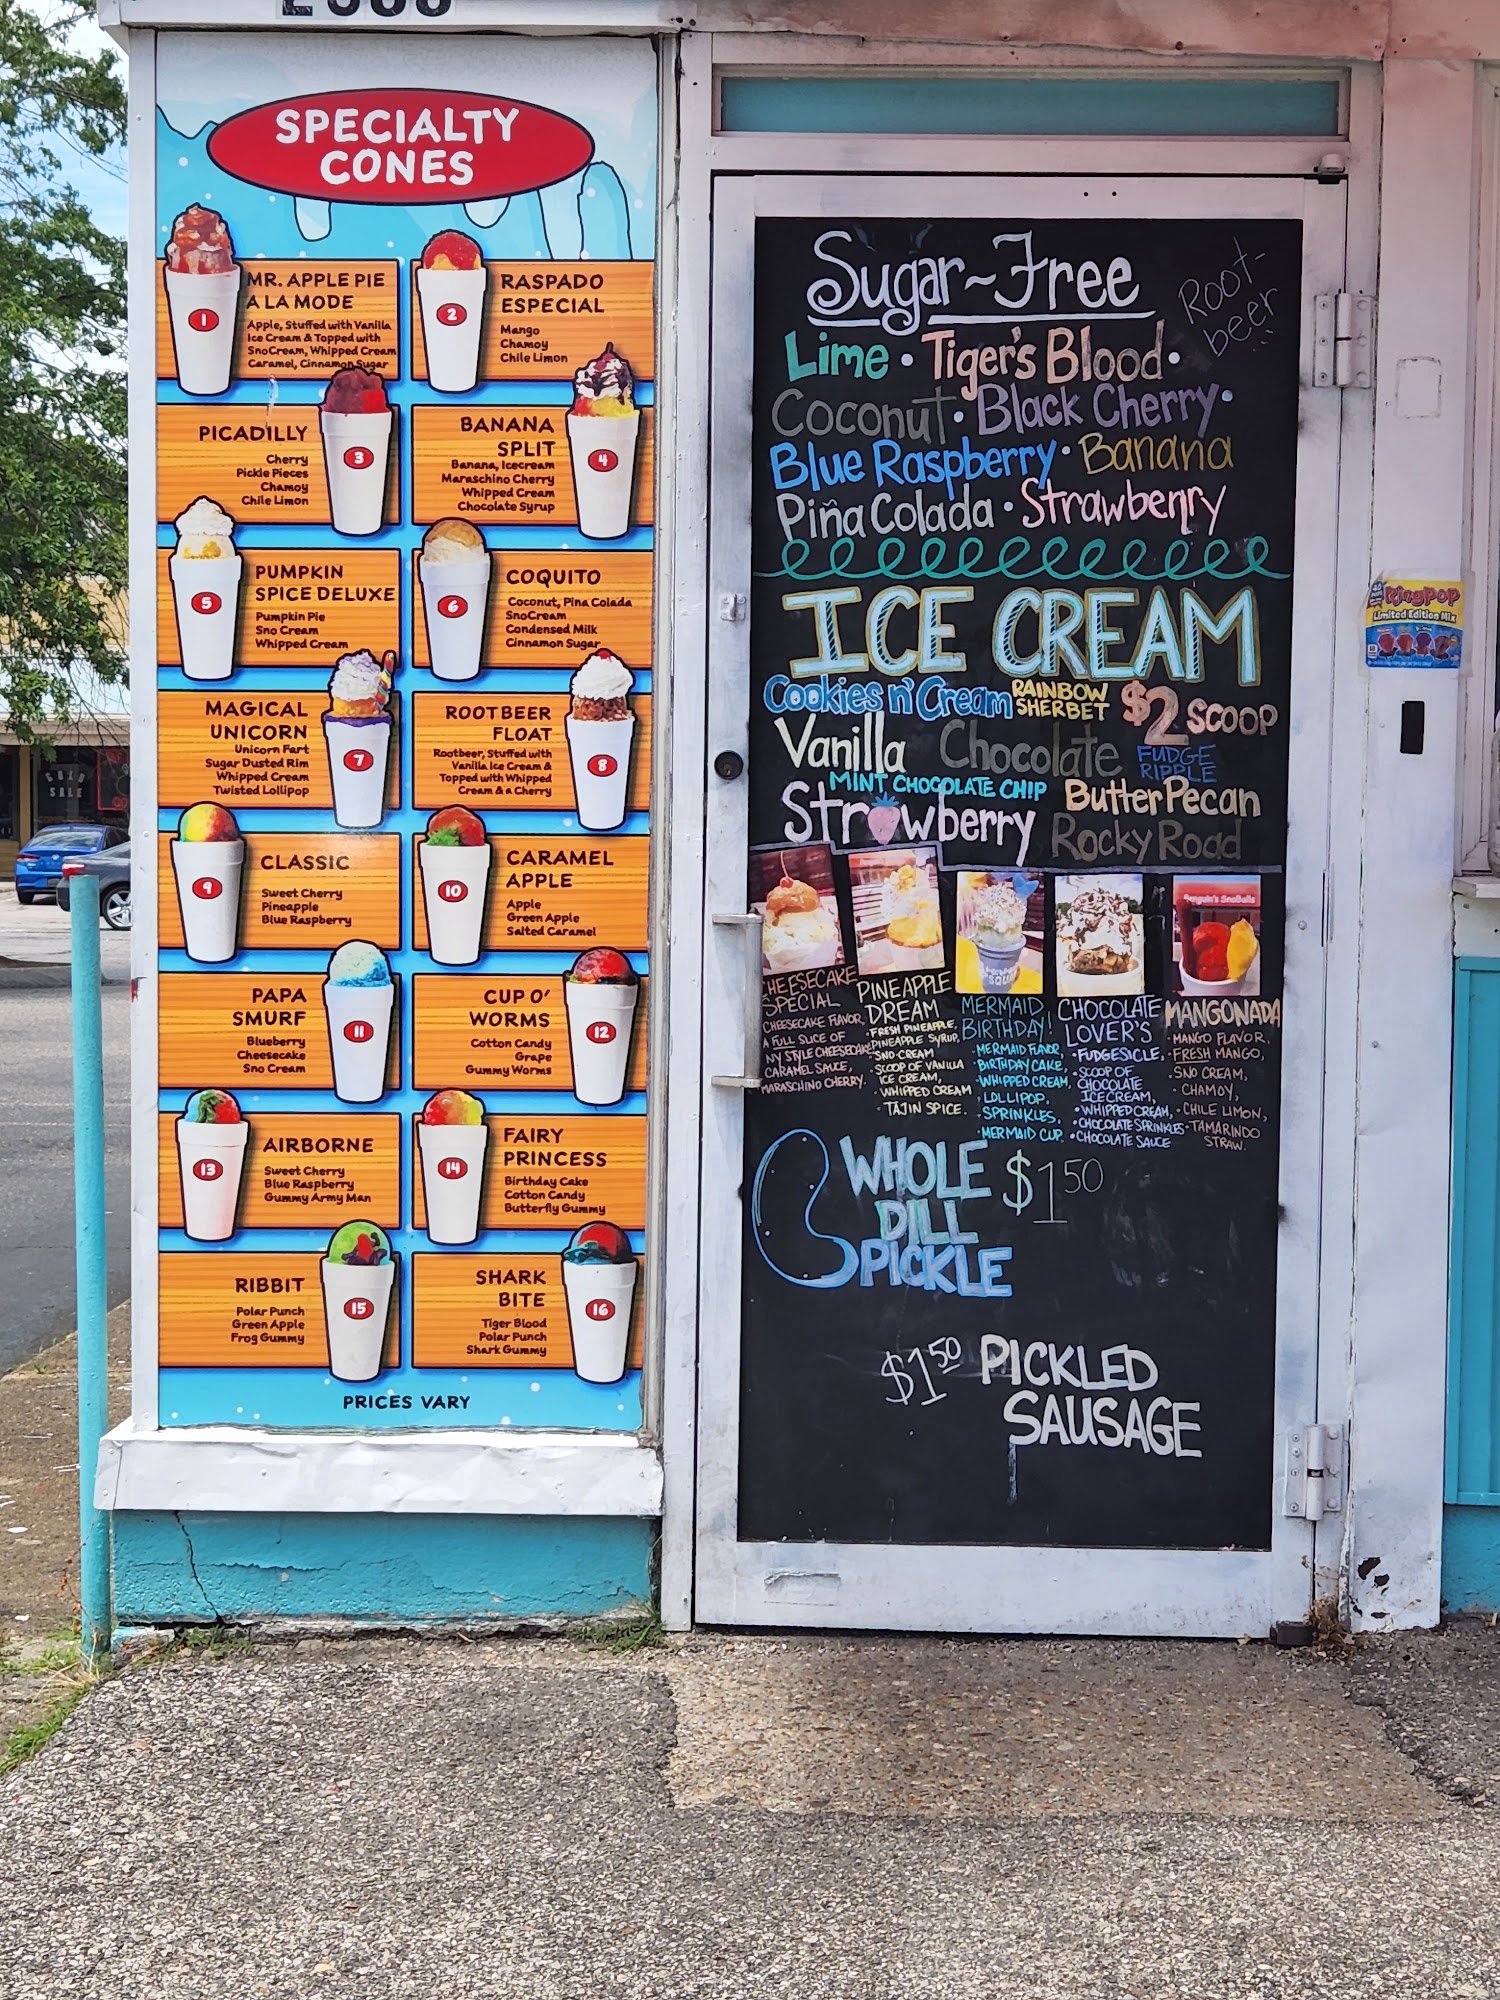 SPECIALTY
CONES
1
MR. APPLE PIE
A LA MODE
Apple, Stuffed with Vanilla
Ice Cream & Topped with
SnoCream, Whipped Cream
Caramel, Cinnamon Sugar
2
RASPADO
ESPECIAL
Mango
Chamoy
Chile Limon
PICADILLY
Cherry
Pickle Pieces
Chamoy
Chile Limon
3
BANANA
SPLIT
Banana, Icecream
Maraschino Cherry
Whipped Cream
Chocolate Syrup
4
5
PUMPKIN
SPICE DELUXE
Pumpkin Pie
Sno Cream
Whipped Cream
6
COQUITO
Coconut, Pina Colada
SnoCream
Condensed Milk
Cinnamon Sugar
MAGICAL
UNICORN
Unicorn Fart
Sugar Dusted Rim
Whipped Cream
Twisted Lollipop
7
ROOTBEER
FLOAT
Rootbeer, Stuffed with
Vanilla Ice Cream &
Topped with Whipped
Cream & a Cherry
8
9
CLASSIC
Sweet Cherry
Pineapple
Blue Raspberry
10
CARAMEL
APPLE
Apple
Green Apple
Salted Caramel
PAPA
SMURF
Blueberry
Cheesecake
Sno Cream
11
CUP O'
WORMS
Cotton Candy
Grape
Gummy Worms
12
13
AIRBORNE
Sweet Cherry
Blue Raspberry
Gummy Army Man
14
FAIRY
PRINCESS
Birthday Cake
Cotton Candy
Butterfly Gummy
RIBBIT
Polar Punch
Green Apple
Frog Gummy
15
SHARK
BITE
Tiger Blood
Polar Punch
Shark Gummy
16
PRICES VARY
Sugar~Free
Root-
beer
Lime • Tiger's Blood •
Coconut • Black Cherry •
Blue Raspberry • Banana
Piña Colada • Strawberry
ICE CREAM
Cookies n' Cream RAINBOW SHERBET $2 SCOOP
Vanilla Chocolate FUDGE RIPPLE
MINT CHOCOLATE CHIP Butter Pecan
Strawberry Rocky Road
Penguin's SnoBalls
CHEESECAKE
SPECIAL
CHEESECAKE FLAVOR,
A FULL SLICE OF
NY STYLE CHEESECAKE
CARAMEL SAUCE,
MARASCHINO CHERRY.
PINEAPPLE
DREAM
• FRESH PINEAPPLE,
PINEAPPLE SYRUP,
SNO CREAM
• SCOOP OF VANILLA
ICE CREAM,
• WHIPPED CREAM
• TAJIN SPICE.
MERMAID
BIRTHDAY!
• MERMAID FLAVOR,
• BIRTHDAY CAKE,
• WHIPPED CREAM,
• LOLLIPOP,
• SPRINKLES,
• MERMAID CUP.
CHOCOLATE
LOVER'S
• FUDGESICLE,
• SCOOP OF
CHOCOLATE
ICE CREAM,
• WHIPPED CREAM,
• CHOCOLATE SPRINKLES
• CHOCOLATE SAUCE
MANGONADA
• MANGO FLAVOR,
• FRESH MANGO,
SNO CREAM,
• CHAMOY,
• CHILE LIMON,
• TAMARINDO
STRAW.
WHOLE $1.50
DILL
PICKLE
$1.50 PICKLED
SAUSAGE
RingPop
Limited Edition Mix